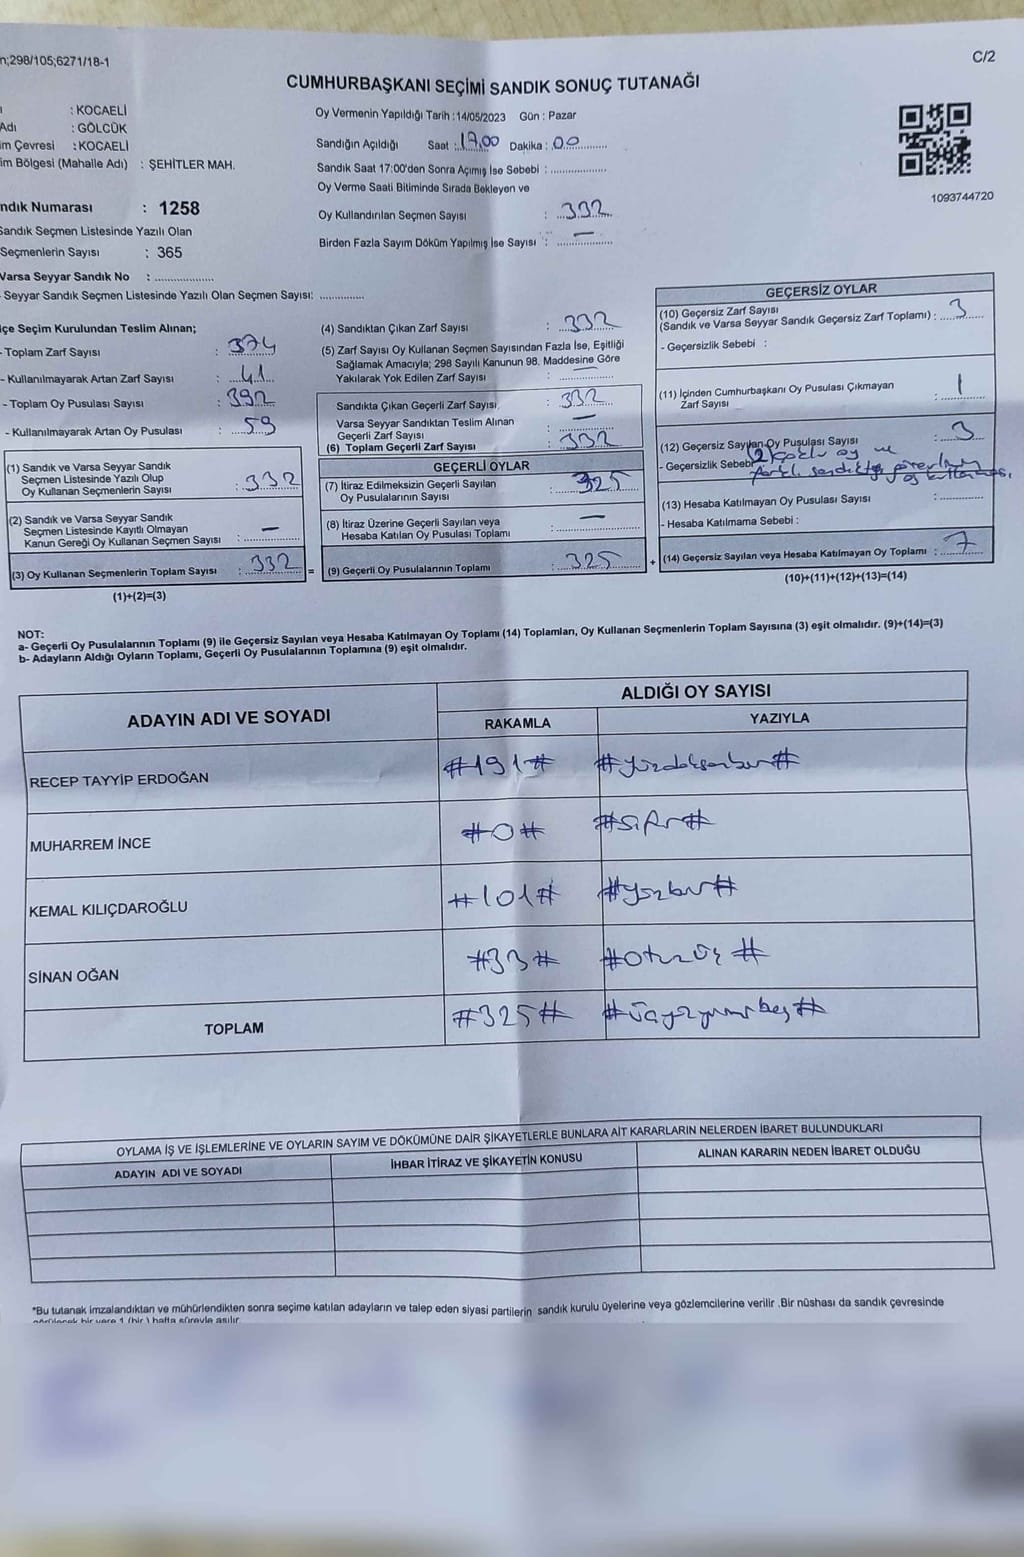 n;298/105;6271/18-1
C/2
CUMHURBAŞKANI SEÇİMİ SANDIK SONUÇ TUTANAĞI
: KOCAELİ
Adı : GÖLCÜK
im Çevresi : KOCAELİ
im Bölgesi (Mahalle Adı) : ŞEHİTLER MAH.
ndık Numarası : 1258
Sandık Seçmen Listesinde Yazılı Olan
Seçmenlerin Sayısı : 365
Varsa Seyyar Sandık No : ................
Seyyar Sandık Seçmen Listesinde Yazılı Olan Seçmen Sayısı: ............
Oy Vermenin Yapıldığı Tarih : 14/05/2023 Gün : Pazar
Sandığın Açıldığı Saat : 17.00 Dakika : 00
Sandık Saat 17:00'den Sonra Açımış İse Sebebi : ................
Oy Verme Saati Bitiminde Sırada Bekleyen ve
Oy Kullandırılan Seçmen Sayısı : 332
Birden Fazla Sayım Döküm Yapılmış İse Sayısı : —
1093744720
çe Seçim Kurulundan Teslim Alınan;
- Toplam Zarf Sayısı : 374
- Kullanılmayarak Artan Zarf Sayısı : 41
- Toplam Oy Pusulası Sayısı : 392
- Kullanılmayarak Artan Oy Pusulası : 59
(1) Sandık ve Varsa Seyyar Sandık
Seçmen Listesinde Yazılı Olup
Oy Kullanan Seçmenlerin Sayısı : 332
(2) Sandık ve Varsa Seyyar Sandık
Seçmen Listesinde Kayıtlı Olmayan
Kanun Gereği Oy Kullanan Seçmen Sayısı : —
(3) Oy Kullanan Seçmenlerin Toplam Sayısı : 332
(1)+(2)=(3)
(4) Sandıktan Çıkan Zarf Sayısı : 332
(5) Zarf Sayısı Oy Kullanan Seçmen Sayısından Fazla İse, Eşitliği
Sağlamak Amacıyla; 298 Sayılı Kanunun 98. Maddesine Göre
Yakılarak Yok Edilen Zarf Sayısı : —
Sandıkta Çıkan Geçerli Zarf Sayısı : 332
Varsa Seyyar Sandıktan Teslim Alınan
Geçerli Zarf Sayısı : —
(6) Toplam Geçerli Zarf Sayısı : 332
GEÇERLİ OYLAR
(7) İtiraz Edilmeksizin Geçerli Sayılan
Oy Pusulalarının Sayısı : 325
(8) İtiraz Üzerine Geçerli Sayılan veya
Hesaba Katılan Oy Pusulası Toplamı : —
= (9) Geçerli Oy Pusulalarının Toplamı : 325
GEÇERSİZ OYLAR
(10) Geçersiz Zarf Sayısı
(Sandık ve Varsa Seyyar Sandık Geçersiz Zarf Toplamı) : 3
- Geçersizlik Sebebi :
(11) İçinden Cumhurbaşkanı Oy Pusulası Çıkmayan
Zarf Sayısı : 1
(12) Geçersiz Sayılan Oy Pusulası Sayısı : 3
- Geçersizlik Sebebi (2) çoklu oy ve
sandıkta
(13) Hesaba Katılmayan Oy Pusulası Sayısı : ............
- Hesaba Katılmama Sebebi :
+ (14) Geçersiz Sayılan veya Hesaba Katılmayan Oy Toplamı : 7
(10)+(11)+(12)+(13)=(14)
NOT:
a- Geçerli Oy Pusulalarının Toplamı (9) ile Geçersiz Sayılan veya Hesaba Katılmayan Oy Toplamı (14) Toplamları, Oy Kullanan Seçmenlerin Toplam Sayısına (3) eşit olmalıdır. (9)+(14)=(3)
b- Adayların Aldığı Oyların Toplamı, Geçerli Oy Pusulalarının Toplamına (9) eşit olmalıdır.
ADAYIN ADI VE SOYADI
ALDIĞI OY SAYISI
RAKAMLA YAZIYLA
RECEP TAYYİP ERDOĞAN #191# #yüzdoksanbir#
MUHARREM İNCE #0# #sıfır#
KEMAL KILIÇDAROĞLU #101# #yüzbir#
SİNAN OĞAN #33# #otuzüç#
TOPLAM #325# #üçyüzyirmibeş#
OYLAMA İŞ VE İŞLEMLERİNE VE OYLARIN SAYIM VE DÖKÜMÜNE DAİR ŞİKAYETLERLE BUNLARA AİT KARARLARIN NELERDEN İBARET BULUNDUKLARI
ADAYIN ADI VE SOYADI İHBAR İTİRAZ VE ŞİKAYETİN KONUSU ALINAN KARARIN NEDEN İBARET OLDUĞU
*Bu tutanak imzalandıktan ve mühürlendikten sonra seçime katılan adayların ve talep eden siyasi partilerin sandık kurulu üyelerine veya gözlemcilerine verilir .Bir nüshası da sandık çevresinde
görülecek bir yere 1 (bir ) hafta süreyle asılır.